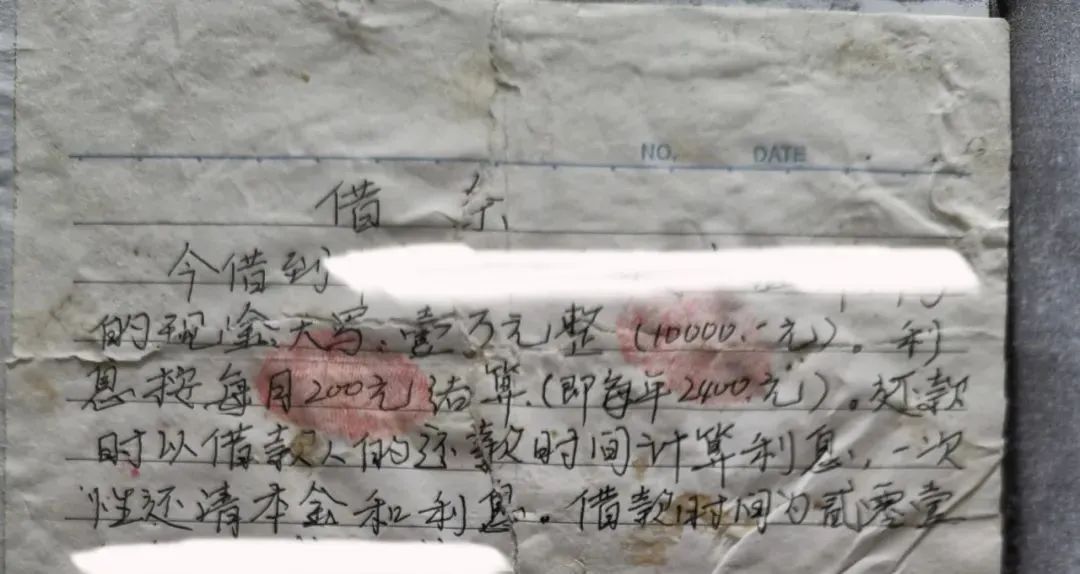 NO. DATE
借条
今借到
的现金:大写:壹万元整(10000.-元)。利
息按每月200元结算(即每年2400.元)。还款
时以借款人的还款时间计算利息,一次
性还清本金和利息。借款时间为贰零壹